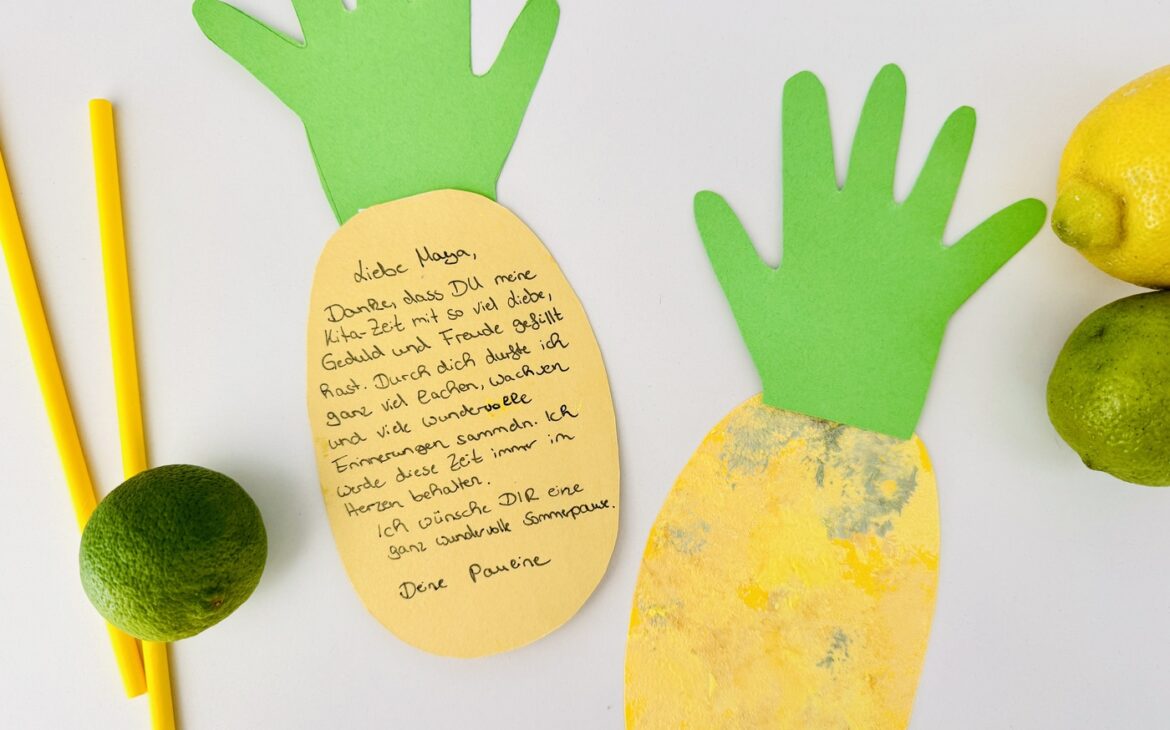 Liebe Maya,
Danke, dass DU meine
Kita-Zeit mit so viel Liebe,
Geduld und Freude gefüllt
hast. Durch dich durfte ich
ganz viel Lachen, wachsen
und viele wundervolle
Erinnerungen sammeln. Ich
werde diese Zeit immer im
Herzen behalten.
Ich wünsche DIR eine
ganz wundervolle Sommerpause.
Deine Pauline